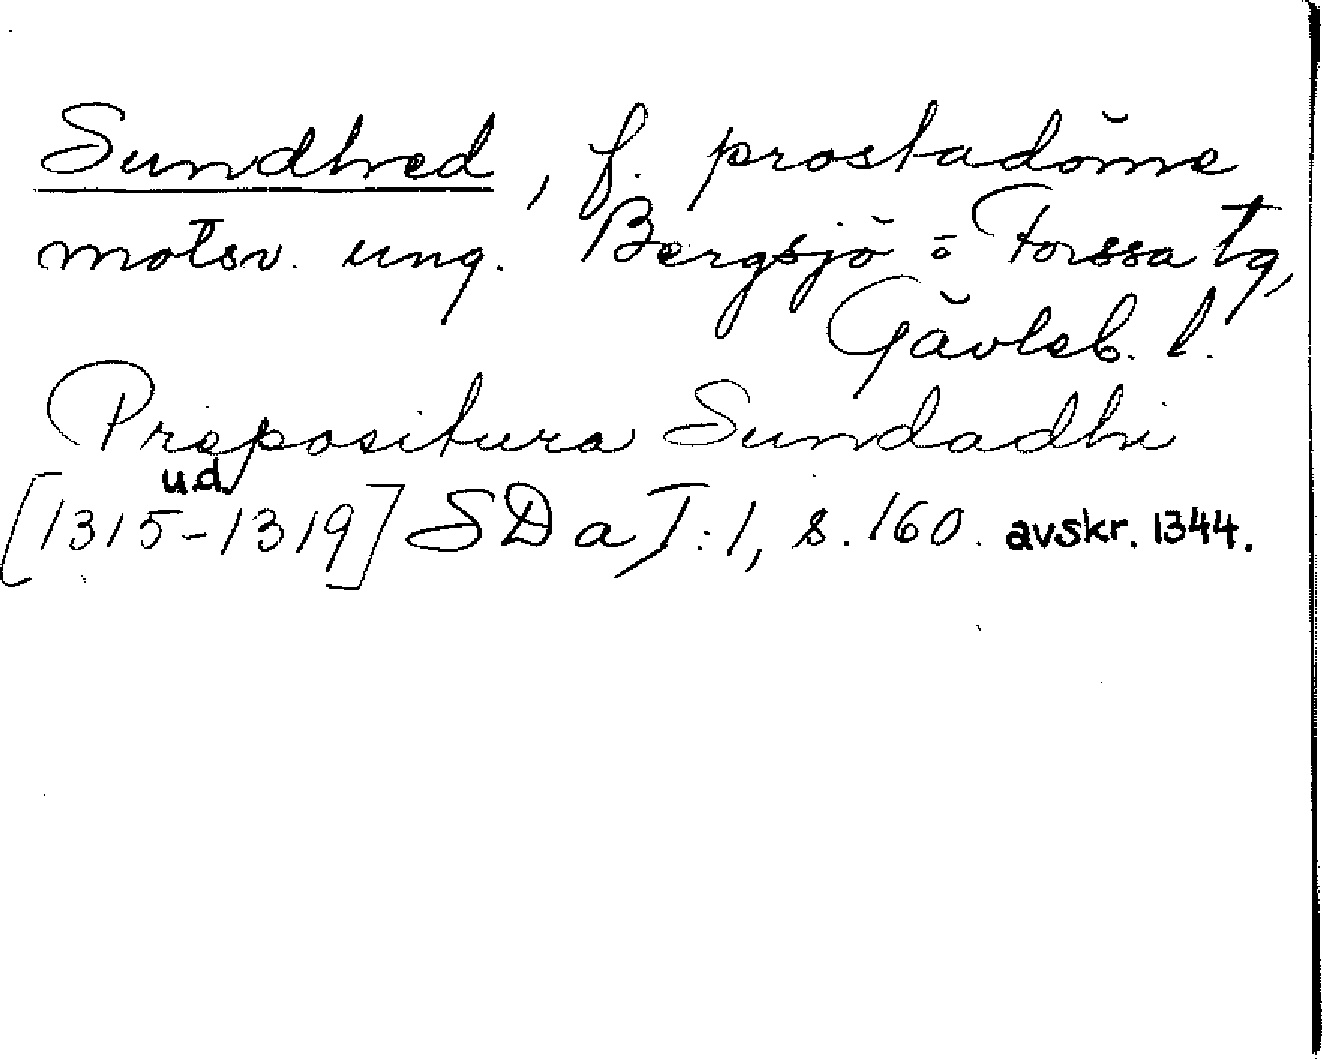 Sundhed, f. prostadöme
motsv. ung. Bergsjö o Forssa tg,
Gävleb. l.
Prepositura Sundadhi
u.d.
[1315-1319] SDa I:1, s. 160. avskr. 1344.